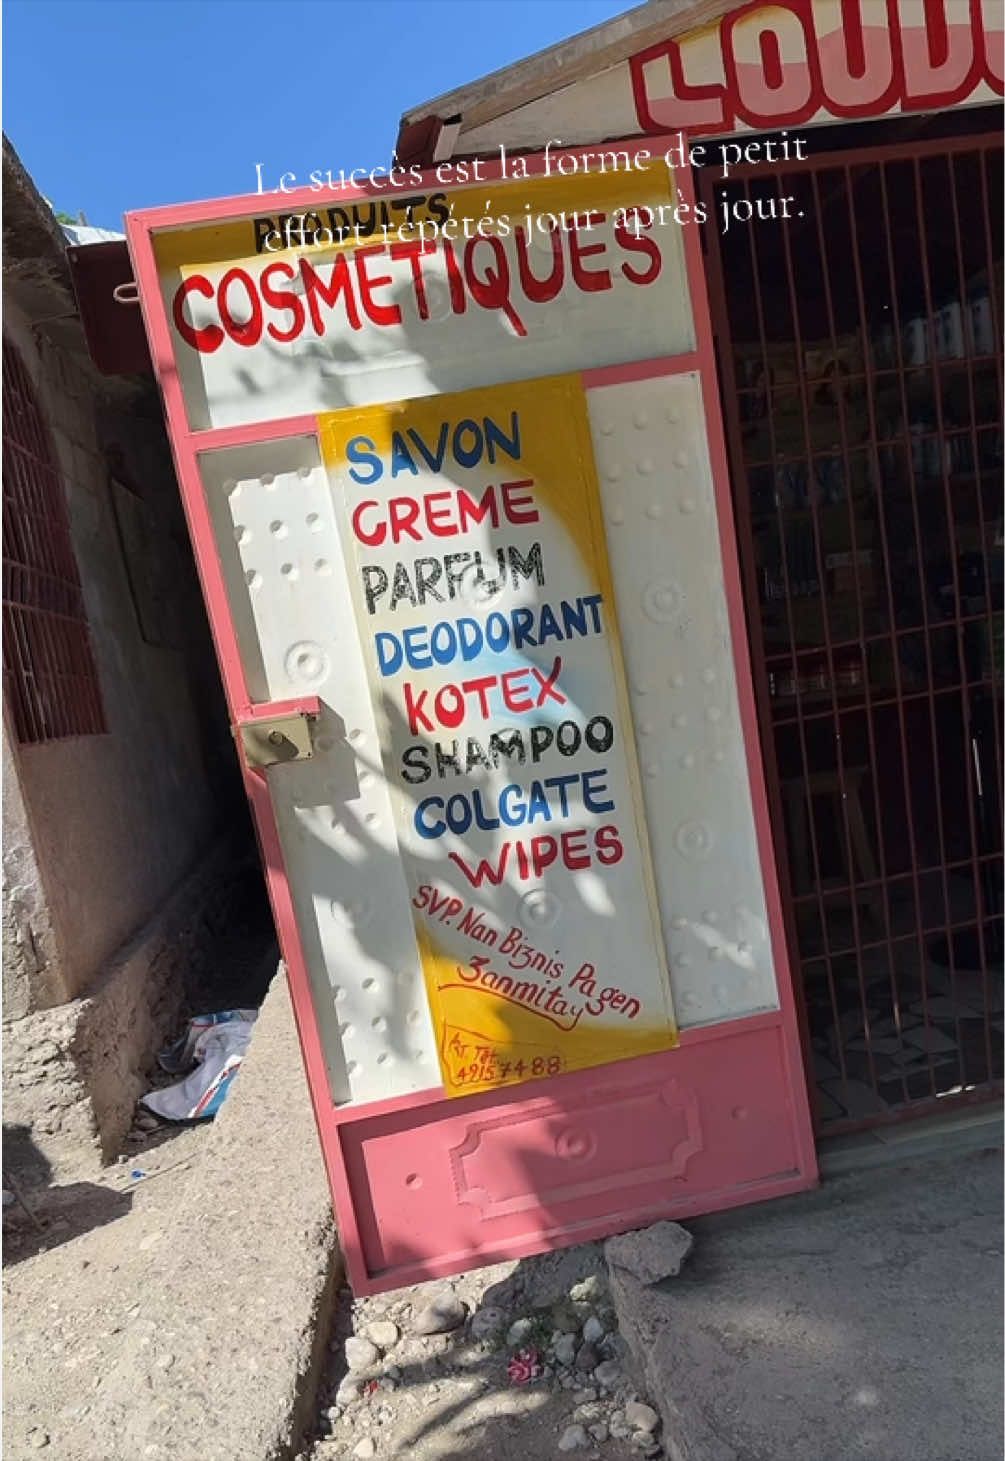 LOUD
Le succès est la forme de petit
effort répétés jour après jour.
PRODUITS
COSMETIQUES
SAVON
CREME
PARFUM
DEODORANT
KOTEX
SHAMPOO
COLGATE
WIPES
SVP. Nan Biznis Pa gen
Zanmitay
Art Tel.
4915 7488